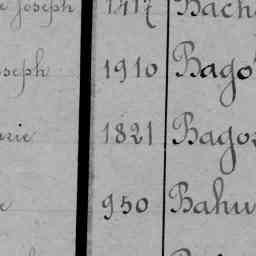 Joseph 1417 Bach
oseph 1910 Bago
arie 1821 Bagos
e 950 Bahu